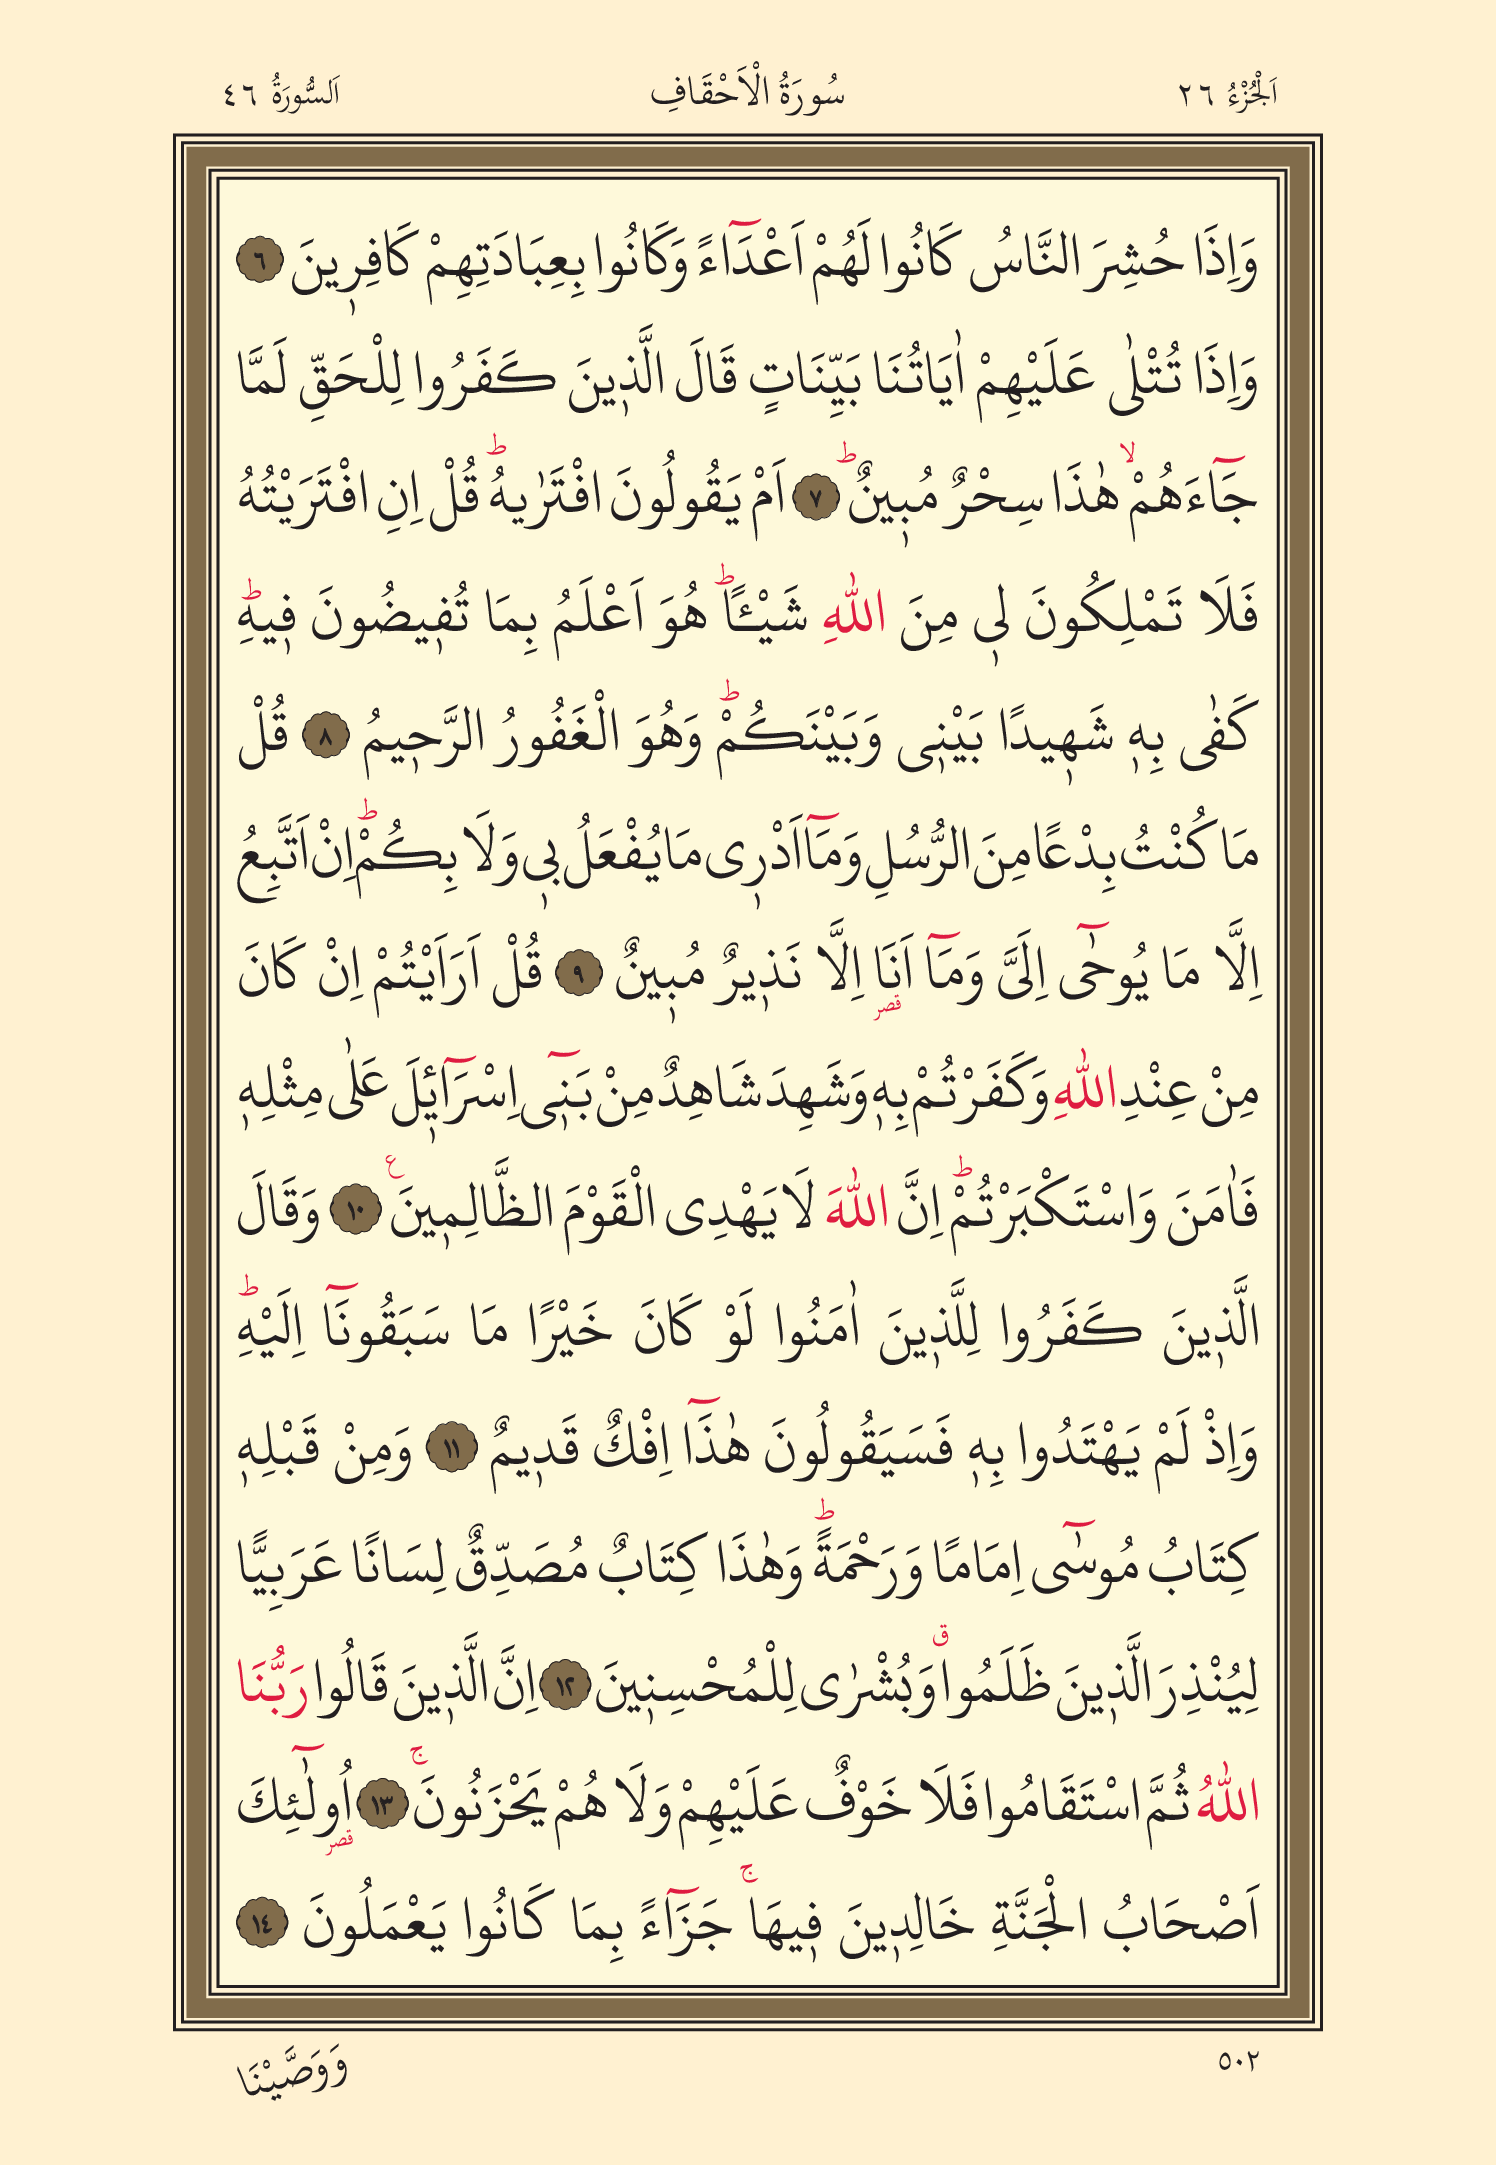 اَلْجُزْءُ ٢٦ سُورَةُ الْاَحْقَافِ اَلسُّورَةُ ٤٦
وَاِذَا حُشِرَ النَّاسُ كَانُوا لَهُمْ اَعْدَٓاءً وَكَانُوا بِعِبَادَتِهِمْ كَافِرٖينَ ٦
وَاِذَا تُتْلٰى عَلَيْهِمْ اٰيَاتُنَا بَيِّنَاتٍ قَالَ الَّذٖينَ كَفَرُوا لِلْحَقِّ لَمَّا
جَٓاءَهُمْۙ هٰذَا سِحْرٌ مُبٖينٌؕ ٧ اَمْ يَقُولُونَ افْتَرٰيهُؕ قُلْ اِنِ افْتَرَيْتُهُ
فَلَا تَمْلِكُونَ لٖى مِنَ اللّٰهِ شَيْـًٔاؕ هُوَ اَعْلَمُ بِمَا تُفٖيضُونَ فٖيهِؕ
كَفٰى بِهٖ شَهٖيدًا بَيْنٖى وَبَيْنَكُمْؕ وَهُوَ الْغَفُورُ الرَّحٖيمُ ٨ قُلْ
مَا كُنْتُ بِدْعًا مِنَ الرُّسُلِ وَمَٓا اَدْرٖى مَا يُفْعَلُ بٖى وَلَا بِكُمْؕ اِنْ اَتَّبِعُ
اِلَّا مَا يُوحٰٓى اِلَىَّ وَمَٓا اَنَا۬ اِلَّا نَذٖيرٌ مُبٖينٌ ٩ قُلْ اَرَاَيْتُمْ اِنْ كَانَ
قصر
مِنْ عِنْدِ اللّٰهِ وَكَفَرْتُمْ بِهٖ وَشَهِدَ شَاهِدٌ مِنْ بَنٖٓى اِسْرَٓائٖلَ عَلٰى مِثْلِهٖ
فَاٰمَنَ وَاسْتَكْبَرْتُمْؕ اِنَّ اللّٰهَ لَا يَهْدِى الْقَوْمَ الظَّالِمٖينَ ع ١٠ وَقَالَ
الَّذٖينَ كَفَرُوا لِلَّذٖينَ اٰمَنُوا لَوْ كَانَ خَيْرًا مَا سَبَقُونَٓا اِلَيْهِؕ
وَاِذْ لَمْ يَهْتَدُوا بِهٖ فَسَيَقُولُونَ هٰذَٓا اِفْكٌ قَدٖيمٌ ١١ وَمِنْ قَبْلِهٖ
كِتَابُ مُوسٰٓى اِمَامًا وَرَحْمَةًؕ وَهٰذَا كِتَابٌ مُصَدِّقٌ لِسَانًا عَرَبِيًّا
لِيُنْذِرَ الَّذٖينَ ظَلَمُوا ق وَبُشْرٰى لِلْمُحْسِنٖينَ ١٢ اِنَّ الَّذٖينَ قَالُوا رَبُّنَا
اللّٰهُ ثُمَّ اسْتَقَامُوا فَلَا خَوْفٌ عَلَيْهِمْ وَلَا هُمْ يَحْزَنُونَۚ ١٣ اُولٰٓئِكَ
قصر
اَصْحَابُ الْجَنَّةِ خَالِدٖينَ فٖيهَاۚ جَزَٓاءً بِمَا كَانُوا يَعْمَلُونَ ١٤
٥٠٢ وَوَصَّيْنَا